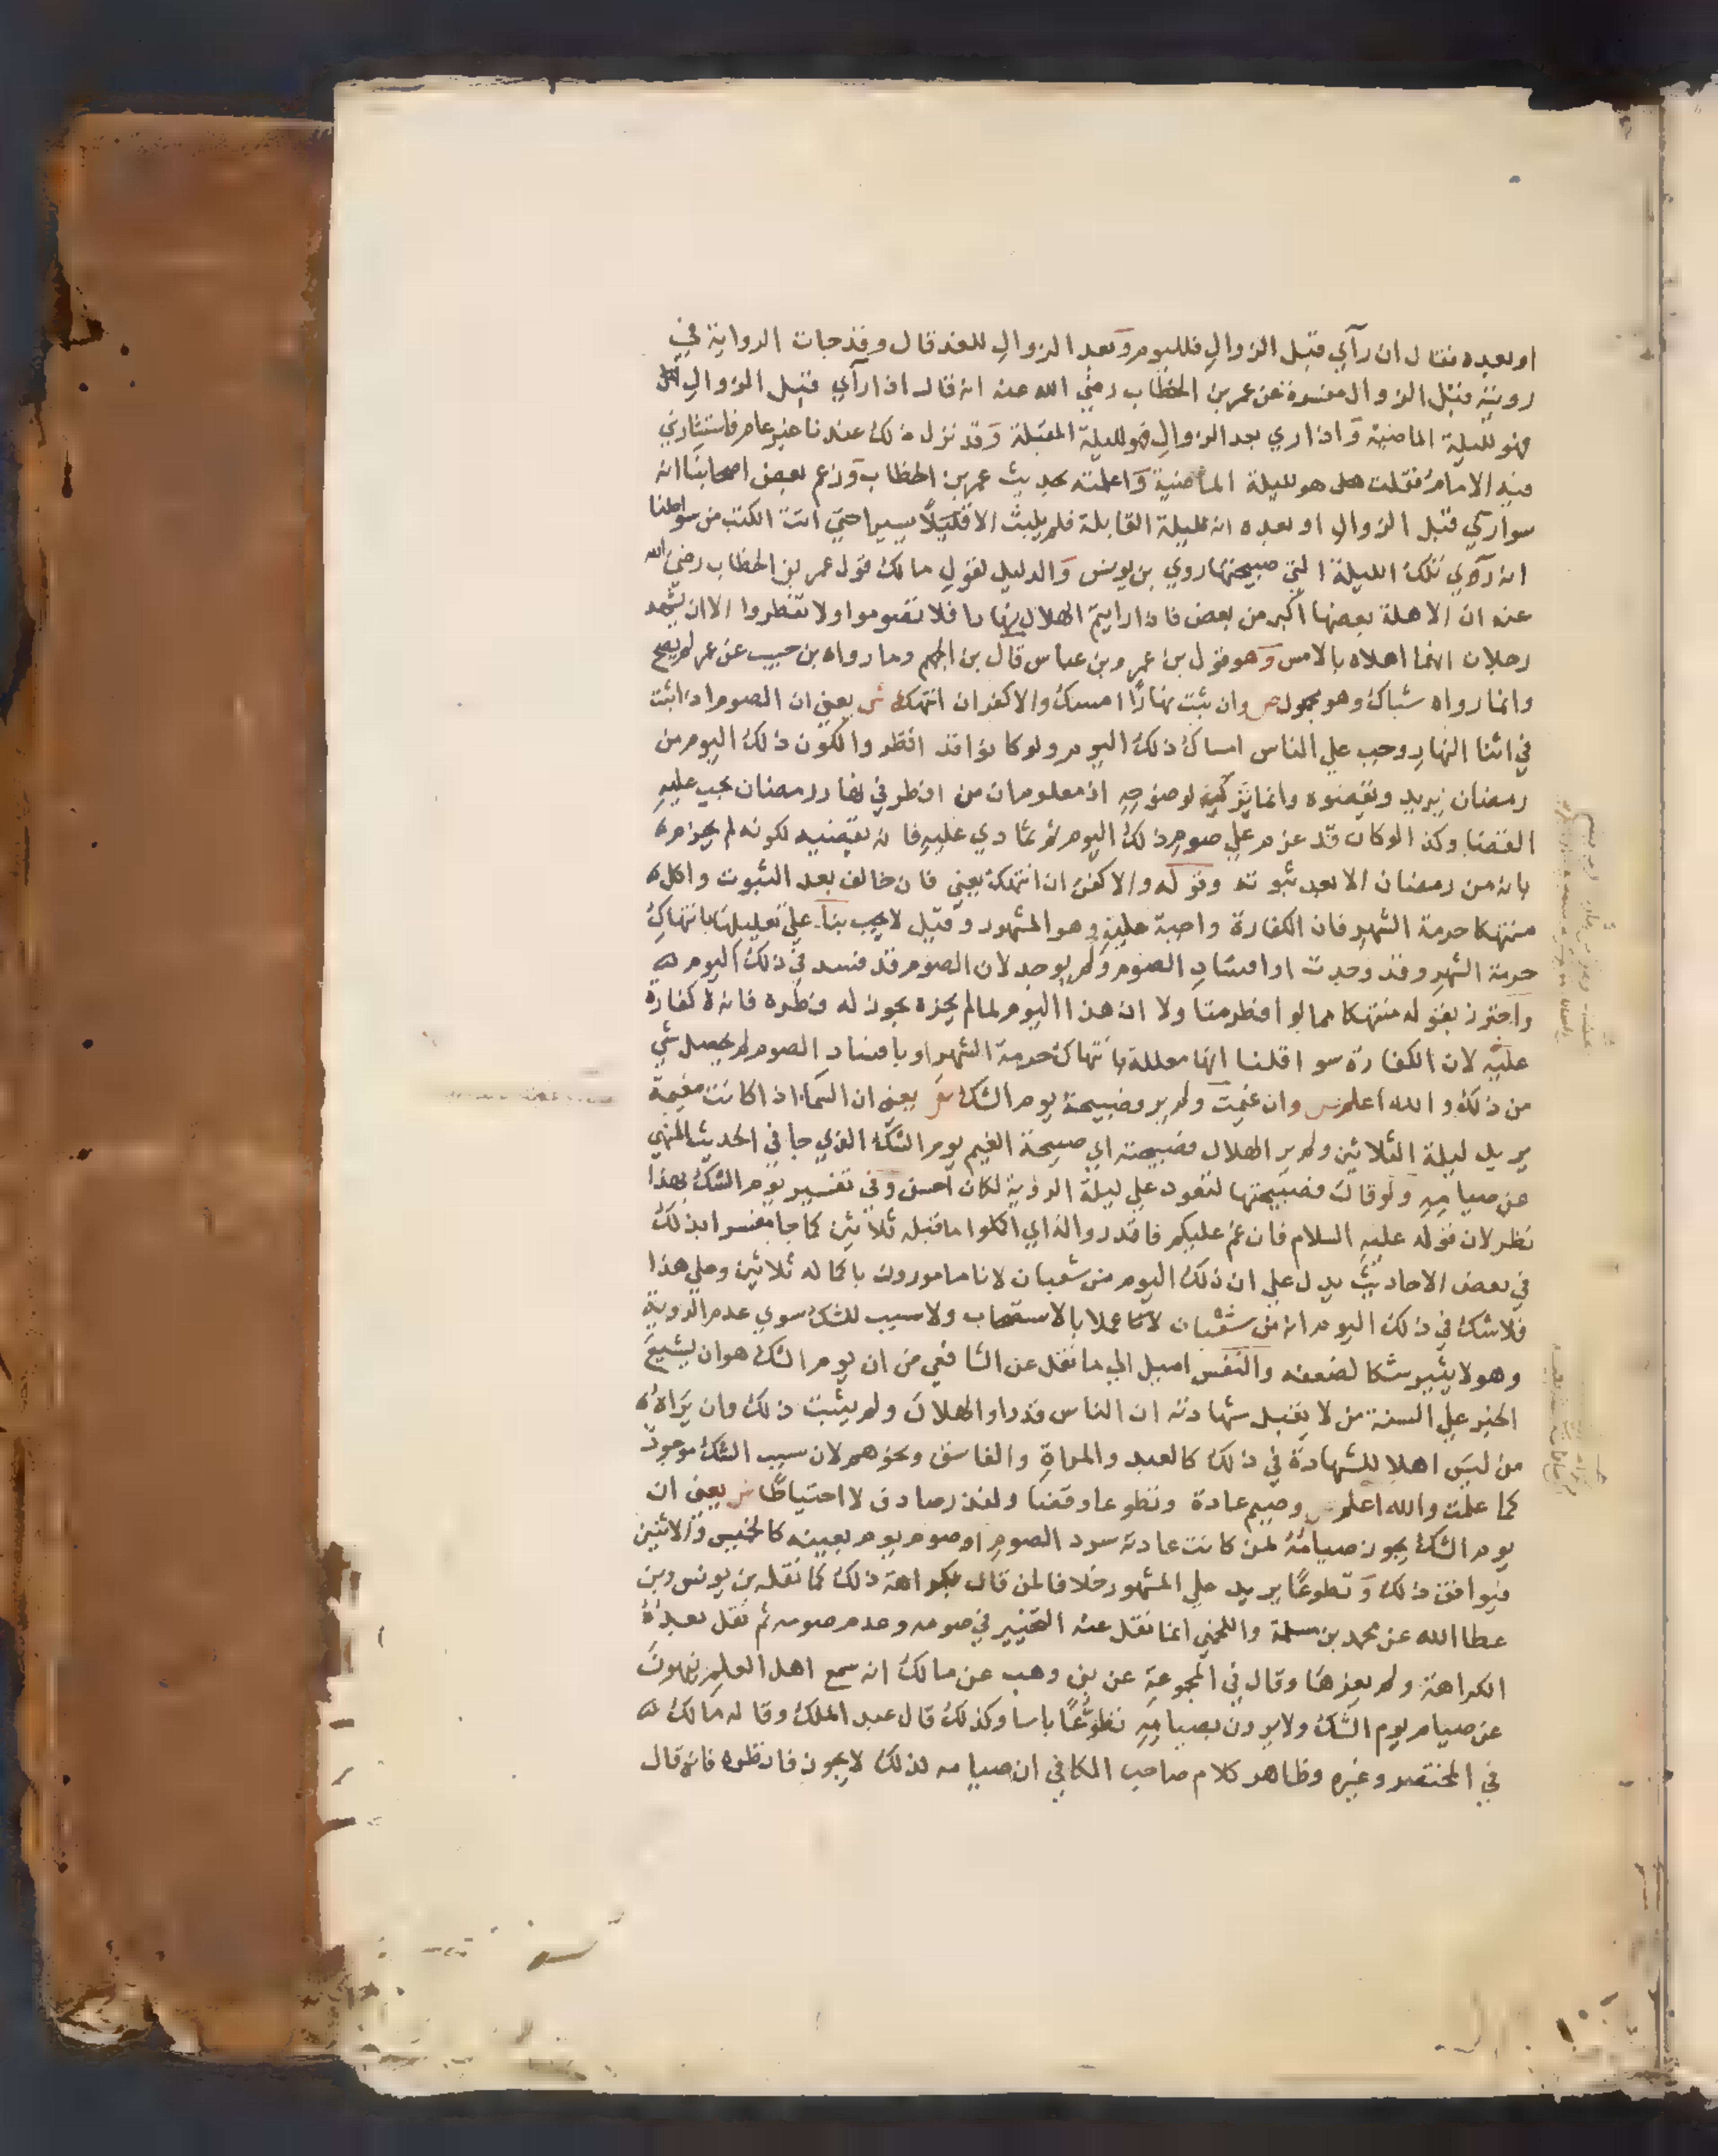 او بعده فقال ان رآي قبل الزوال فلليوم وبعد الزوال للغد قال وقد جات الرواية في
رويته قبل الزوال مفسرة عن عمر بن الخطاب رضي الله عنه انه قال اذا رآي قبل الزوال
فهو لليلة الماضية واذا ري بعد الزوال فهو لليلة المقبلة وقد نزل ذلك عندنا غير عام فاستشارني
فيه الامام فقلت هل هو لليلة الماضية واعلمته بحديث عمر بن الخطاب وزعم بعض اصحابنا انه
سوا ركي قبل الزوال او بعده انه لليلة القابلة فلم يلبث الا قليلا يسيرا حتي اتت الكتب من سواطنا
انه رءي تلك الليلة التي صبيحتها روي بن يونس والدليل لقول مالك قول عمر بن الخطاب رضي الله
عنه ان الاهلة بعضها اكبر من بعض فاذا رايتم الهلال نهارا فلا تصوموا ولا تفطروا الا ان يشهد
رجلان انهما اهلاه بالامس وهو قول بن عمر وبن عباس قال بن الجهم وما رواه بن حبيب عن عمر لم يصح
وانما رواه شباك وهو مجهول ص وان ثبت نهارا امسك والا كفر ان انتهك ش يعني ان الصوم اذا ثبت
في اثنا النهار وجب علي الناس امساك ذلك اليوم ولو كانوا قد افطروا لكون ذلك اليوم من
رمضان يريد ويقضوه وانما يترك فيه لوضوحه اذ معلوم ان من افطر في نهار رمضان يجب عليه
القضا وكذا لو كان قد عزم علي صوم ذلك اليوم ثم تمادي عليه فانه يقضيه لكونه لم يجزم
بانه من رمضان الا بعد ثبوته وقوله والا كفر ان انتهك يعني فان خالف بعد الثبوت واكل
منتهكا حرمة الشهر فان الكفارة واجبة عليه وهو المشهور وقيل لا يجب بنا علي تعليلها بانتهاك
حرمة الشهر وقد وجدت او افساد الصوم ولم يوجد لان الصوم قد فسد في ذلك اليوم
واحترز بقوله منتهكا مما لو افطر متاولا ان هذا اليوم لما لم يجزه يجوز له فطره فانه لا كفارة
عليه لان الكفارة سوا قلنا انها معللة بانتهاك حرمة الشهر او بافساد الصوم لم يحصل شي
من ذلك والله اعلم ص وان غيمت ولم ير فصبيحة يوم الشك ش يعني ان السما اذا كانت مغيمة
يريد ليلة الثلاثين ولم ير الهلال فصبيحته اي صبيحة الغيم يوم الشك الذي جا في الحديث النهي
عن صيامه ولو قال فصبيحتها لتعود علي ليلة الروية لكان احسن وفي تفسير يوم الشك بهذا
نظر لان قوله عليه السلام فان غم عليكم فاقدروا له اي اكملوا ما قبله ثلاثين كما جا مفسرا بذلك
في بعض الاحاديث يدل علي ان ذلك اليوم من شعبان لانا مامورون باكماله ثلاثين وعلي هذا
فلا شك في ذلك اليوم انه من شعبان لانا عملا بالاستصحاب ولا سبب للشك سوي عدم الروية
وهو لا يثير شكا لضعفه والنفس اميل الي ما نقل عن الشافعي من ان يوم الشك هو ان يشيع
الخبر علي السنة من لا يقبل شهادته ان الناس قد راوا الهلال ولم يثبت ذلك وان يراه
من ليس اهلا للشهادة في ذلك كالعبد والمراة والفاسق ونحوهم لان سبب الشك موجود
كما علمت والله اعلم ص وصيم عادة وتطوعا وقضا ولنذر صادف لا احتياطا ش يعني ان
يوم الشك يجوز صيامه لمن كانت عادته سرد الصوم او صوم يوم بعينه كالخميس والاثنين
فيوافق ذلك وتطوعا يريد علي المشهور خلافا لمن قال بكراهة ذلك كما نقله بن يونس وبن
عطا الله عن محمد بن مسلمة واللخمي انما نقل عنه التخيير في صومه وعدم صومه ثم نقل بعده
الكراهة ولم يعزها وقال في المجموعة عن بن وهب عن مالك انه سمع اهل العلم ينهون
عن صيام يوم الشك ولا يرون بصيامه تطوعا باسا وكذلك قال عبد الملك وقاله مالك
في المختصر وغيره وظاهر كلام صاحب الكافي ان صيامه لذلك لا يجوز فانظره فانه قال